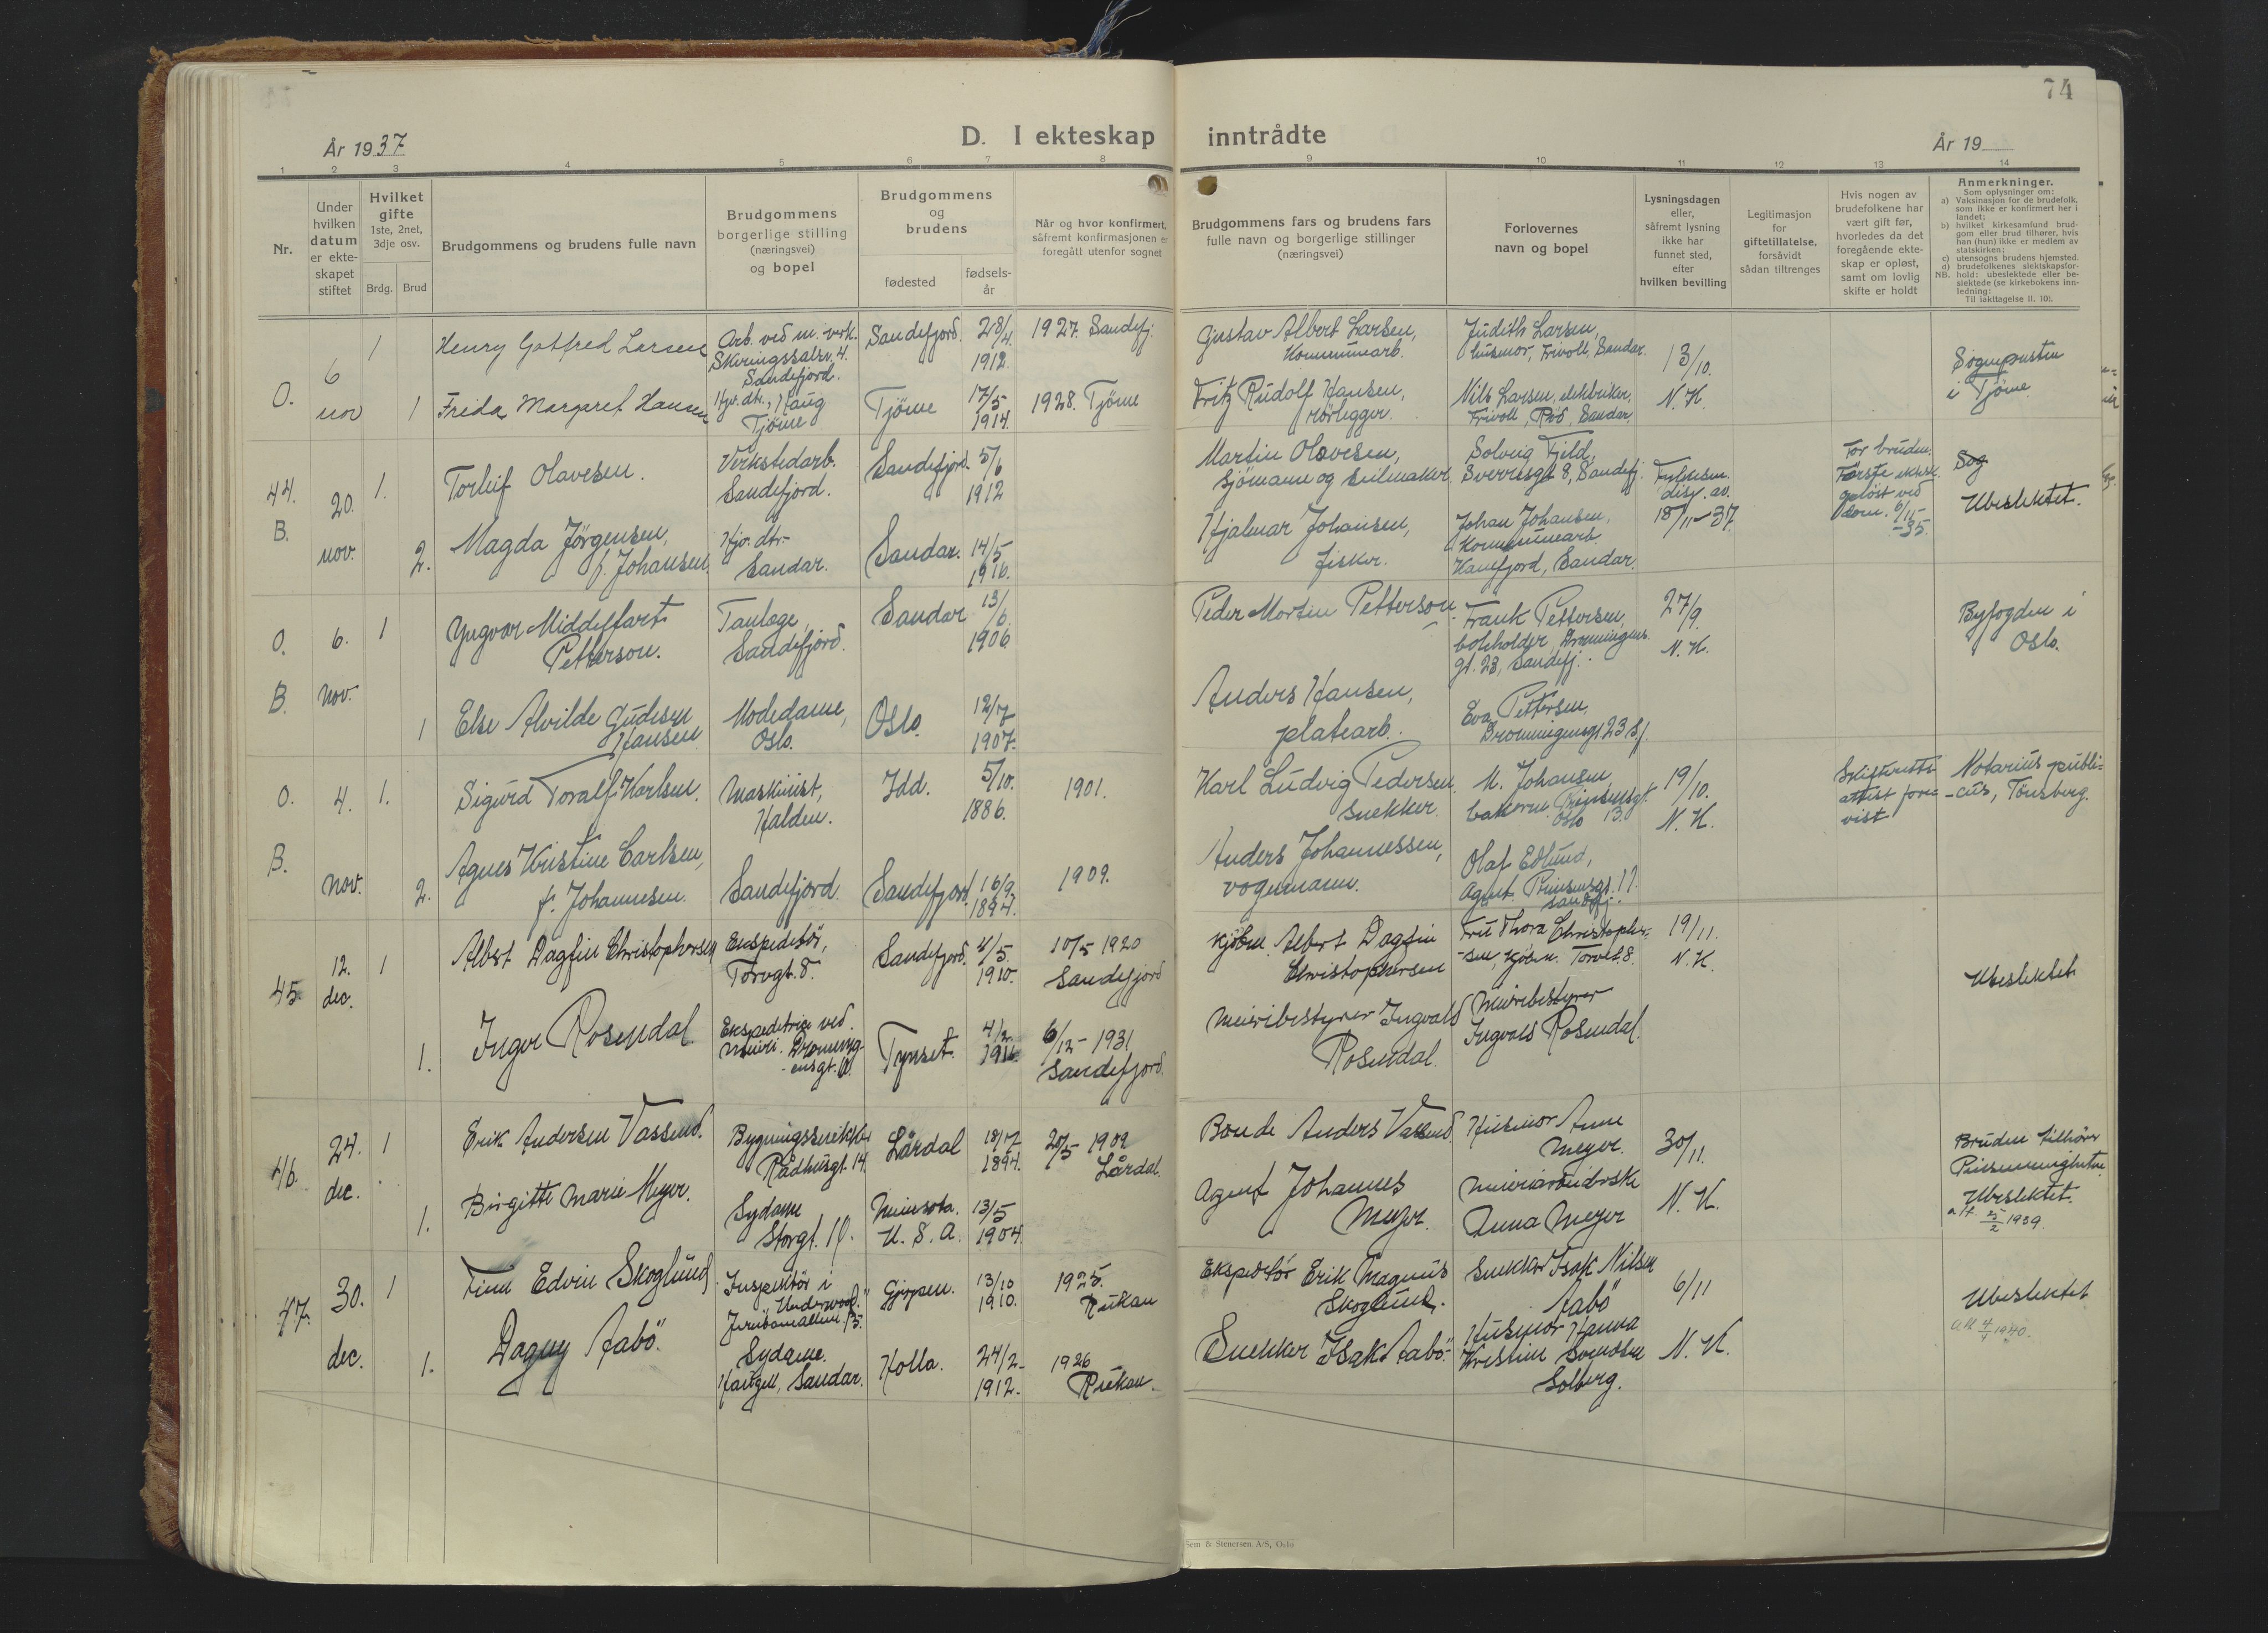 74
År 1937
D. I ekteskap inntrådte
År 19
1 2 3 4 5 6 7 8 9 10 11 12 13 14
Nr.
Under
hvilken
datum
er ekte-
skapet
stiftet
Hvilket
gifte
1ste, 2net,
3dje osv.
Brdg. Brud
Brudgommens og brudens fulle navn
Brudgommens
borgerlige stilling
(næringsvei)
og bopel
Brudgommens
og
brudens
fødested
fødsels-
år
Når og hvor konfirmert,
såfremt konfirmasjonen er
foregått utenfor sognet
Brudgommens fars og brudens fars
fulle navn og borgerlige stillinger
(næringsvei)
Forlovernes
navn og bopel
Lysningsdagen
eller,
såfremt lysning
ikke har
funnet sted,
efter
hvilken bevilling
Legitimasjon
for
giftetillatelse,
forsåvidt
sådan tiltrenges
Hvis nogen av
brudefolkene har
vært gift før,
hvorledes da det
foregående ekte-
skap er opløst,
samt om lovlig
skifte er holdt
Anmerkninger.
Som oplysninger om:
a) Vaksinasjon for de brudefolk,
som ikke er konfirmert her i
landet;
b) hvilket kirkesamfund brud-
gom eller brud tilhører, hvis
han (hun) ikke er medlem av
statskirken;
c) utensogns brudens hjemsted.
d) brudefolkenes slektskapsfor-
hold: ubeslektede eller be-
slektede (se kirkebokens inn-
ledning:
NB. Til iakttagelse II. 10).
O.
6
nov
1
Henry Gotfred Larsen
Arb. ved m. verk.
Skiringssalsv. 4.
Sandefjord.
Sandefjord.
28/4.
1912.
1927. Sandefj.
Gustav Albert Larsen,
Kommunearb.
Judith Larsen,
husmor, Frivoll, Sandar.
13/10.
Sogneprsten
i Tjöme
1
Frida Margaret Hansen
Hjv. dtr., Haug
Tjöme
Tjöme
17/5
1914.
1928. Tjöme
Fritz Rudolf Hansen,
rörlegger.
Nils Larsen, elektriker,
Frivoll, Rö, Sandar.
N. K.
44.
B.
20.
nov.
1.
Torleif Olavesen.
Verkstedarb.
Sandefjord.
Sandefjord.
5/6
1912
Martin Olavesen,
Sjömann og seilmaker.
Solveig Fjeld,
Sverresgt 8, Sandefj.
Fylkesm.
disp. av.
18/11-37.
For bruden:
Første ektesk.
opløst ved
dom. 6/11-
-35.
Sog
Ubeslektet.
2.
Magda Jörgensen,
f. Johansen.
Hjv. dtr.
Sandar.
Sandar.
14/5
1916.
Hjalmar Johansen,
fisker.
Johan Johansen,
Kommunearb.
Kamfjord, Sandar.
O.
B.
6.
nov.
1
Yngvar Middelfart
Petterson.
Tanlæge,
Sandefjord.
Sandar
13/6.
1906
Peder Morten Petterson
Frank Pettersen,
bokholder, Dronningens
gt. 23, Sandefj.
27/9.
N. K.
Byfogden i
Oslo.
1
Else Alvilde Gudesen
Hansen
Modedame,
Oslo.
Oslo.
12/7
1907.
Anders Hansen,
platearb.
Eva Pettersen,
Dronningensgt 23 Sj.
O.
B.
4.
nov.
1.
Sigurd Toralf Karlsen.
Maskinist,
Halden.
Idd.
5/10.
1886.
1901.
Karl Ludvig Pedersen
snekker.
M. Johansen
bakerm. Prinsensgt.
Oslo 13.
19/10.
N. K.
Skifteretts-
attest fore-
vist
Notarius publi-
-cus, Tönsberg.
2.
Agnes Kristine Carlsen,
f. Johannesen.
Sandefjord.
Sandefjord.
16/9.
1894.
1909.
Anders Johannessen,
vognmann.
Olaf Edlund,
Agent. Prinsensgt. 17.
Sandefj.
45.
12.
dec.
1
Albert Dagfin Christophersen
Enspeditör,
Torvgt. 8.
Sandefjord.
4/5.
1910.
10/5 1920
Sandefjord
Kjöbm. Albert Dagfin
Christophersen
Fru Thora Christopher-
sen, Kjöbm. Torvet. 8.
19/11.
N. K.
Ubeslektet
1.
Inger Rosendal.
Ekspeditrise ved.
meieri. Dronning-
-ensgt. 10.
Tynset.
4/2.
6/12- 1931
Sandefjord.
Meieribestyrer Ingvald
Rosendal.
Meieribestyrer
Ingvald Rosendal.
46.
24.
dec.
1
Erik Andersen Vassend.
Bygningssnekker
Rådhusgt. 14.
Lårdal
18/17
1894.
20/5 1909
Lårdal.
Bonde Anders Vassend
Husmor Anne
Meyer.
30/11.
N. K.
Bruden tilhörer
Pinsemenigheten
Ubeslektet.
att. 5/2 1939.
1.
Birgitte Marie Meyer.
Sydame
Storgt. 10.
Minnsota.
U. S. A.
13/5
1904.
Agent Johannes
Meyer.
Meieriarbeiderske
Anna Meyer
47.
30.
dec.
1
Finn Edvin Skoglund
Inspektör i
"Underwood."
Jernbanealleen 13.
Gjerpen.
13/10
1910.
1925.
Rukan
Ekspeditör Erik Magnus
Skoglund.
Snekker Isak Nilsen
Aabö
6/11
N. K.
Ubeslektet
att 4/1 1940.
1.
Dagny Aabö.
Sydame.
Haugen, Sandar.
Holla.
24/2-
1912.
1926
Rukan.
Snekker Isak Aabö.
Husmor Hanna
Kristine Svendsen
Solberg.
Sem & Stenersen A/S, Oslo